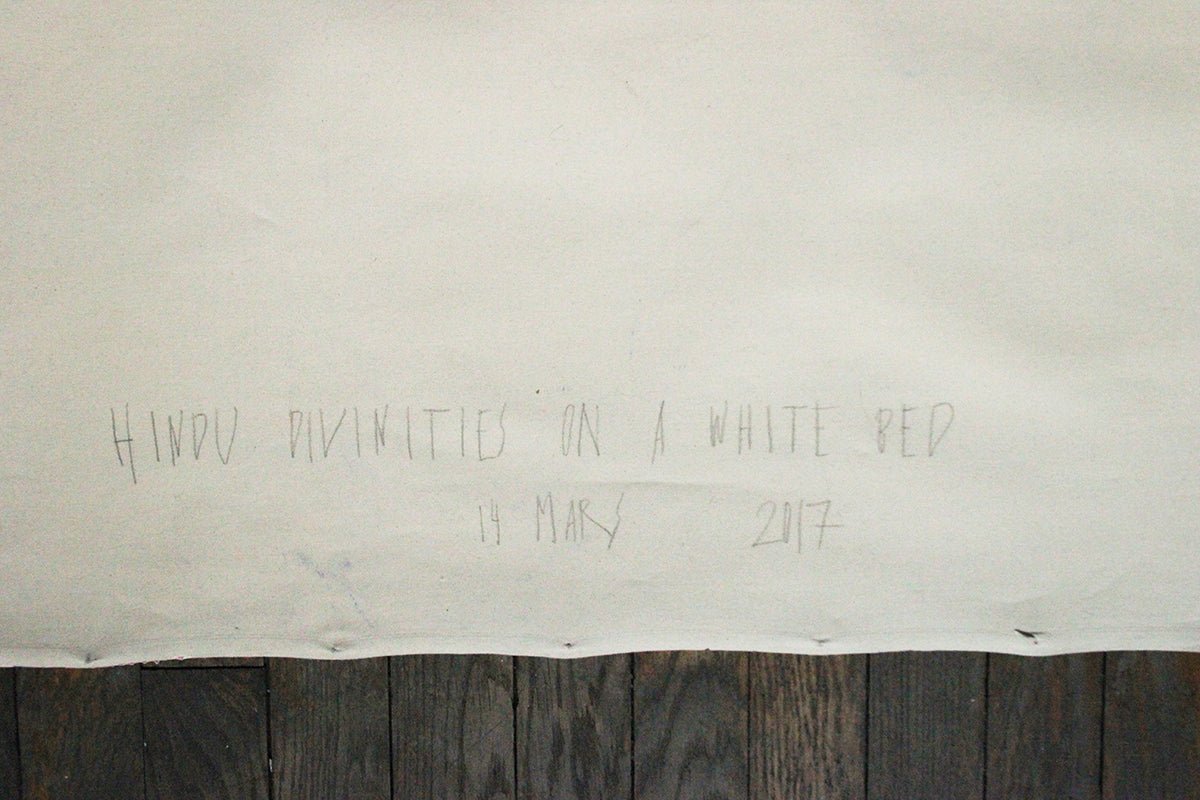 HINDU DIVINITIES ON A WHITE BED
14 MARS 2017